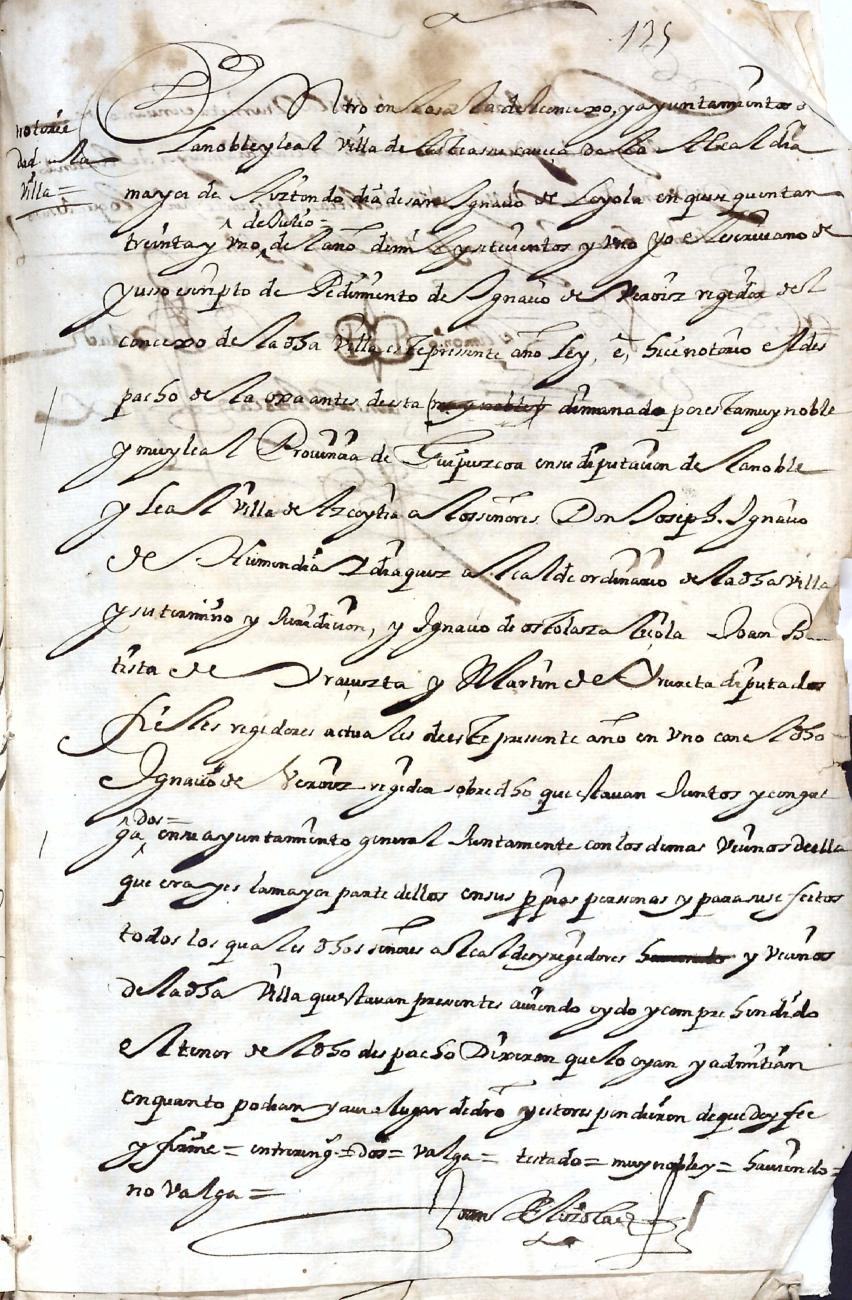 125
Dentro en la sala del concexo, y ayuntamientos de
notorie
dad a la
Villa =
la noble y leal Villa de caueça de la Alcaldia
mayor de Aiztondo dia de san Ignaçio de Loyola en que se quentan
de Julio =
treinta y vno de l año de mil y setecientos y vno yo el escriuano de
yusso escripto de Pedimento de Ignaçio de Veroiz regidor del
concexo de la dha Villa este presente año ley, e, hice notorio el des
pacho de la oxa antes de esta muy noble y dimanado por esta muy noble
y muy leal Prouinçia de Guipuzcoa en su diputaçion de la noble
y Leal Villa de Azcoytia a los señores Don Joseph Ignaçio
de alcalde ordinario de la dha Villa
y su termino y Juridicion, y Ignaçio de ostolaza Joan Ba
tista de y Martin de Vrureta diputados
fieles regidores actuales de este presente año en vno con el dho
Ignaçio de Veroiz regidor sobre dho que estauan Juntos y congre
dos =
ga en su ayuntamiento general Juntamente con los demas Vecinos de ella
que era y es la mayor parte dellos en sus pprias personas y para sus efectos
todos los quales dhos señores alcaldes y regidores hauiendo y Vecinos
de la dha Villa que estauan presentes auiendo oydo y comprehendido
el tenor de el dho despacho Dixeron que lo oyan y admitian
en quanto podian y auia lugar de dro y esto respondieron de que doy fee
y firme = entrereng = Dos = Valga = testado = muy noble y = hauiendo =
no Valga =
Joan de